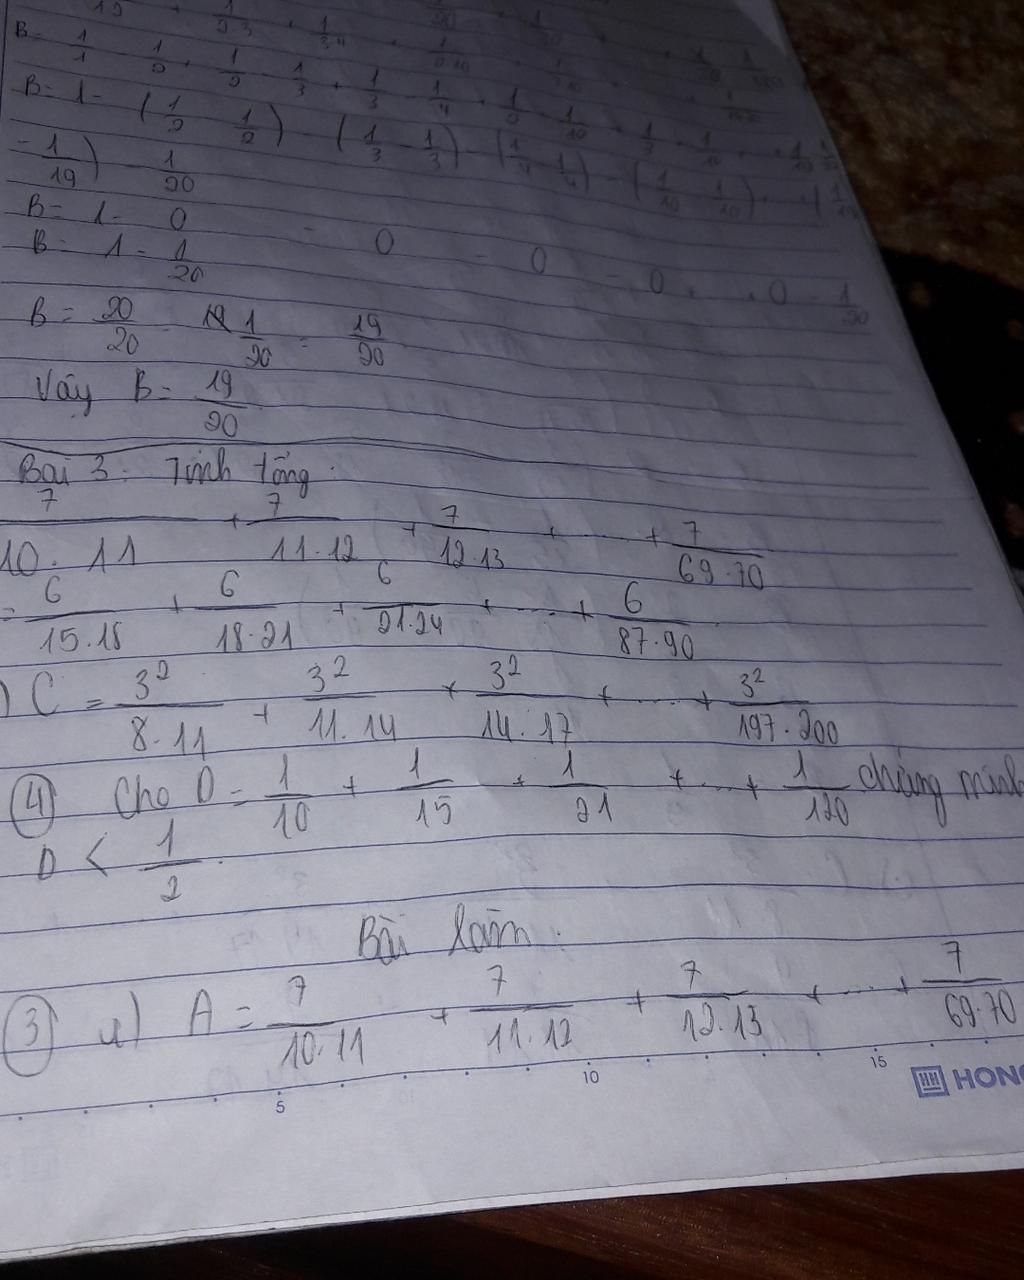 B= 1/1 - 1/2 + 1/2 - 1/3 + 1/3 - 1/4 + 1/9 - 1/10
B= 1 - (1/2 - 1/2) - (1/3 - 1/3) - (1/4 - 1/4) - (1/10 - 1/10)
- 1/19) - 1/20
B= 1 - 0 - 0 - 0 - 0 . . 0 - 1/20
B= 1 - 1/20
B= 20/20 - 1/20 = 19/20
Vậy B= 19/20
Bài 3: Tính tổng.
7/10.11 + 7/11.12 + 7/12.13 + ... + 7/69.70
= 6/15.18 + 6/18.21 + 6/21.24 + ... + 6/87.90
) C = 3²/8.11 + 3²/11.14 + 3²/14.17 + ... + 3²/197.200
4 Cho D = 1/10 + 1/15 + 1/21 + ... + 1/120 chứng minh
D < 1/2.
Bài làm:
3 a) A = 7/10.11 + 7/11.12 + 7/12.13 + ... + 7/69.70
5 10 15
HONG